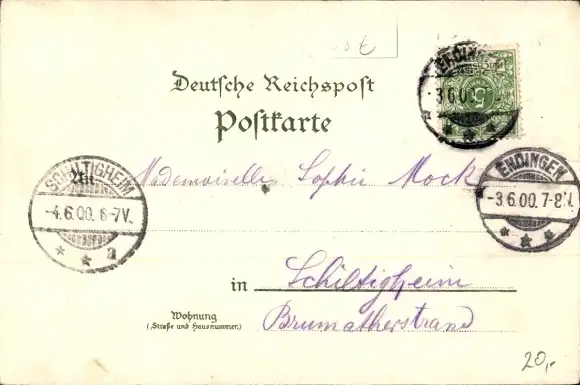 Deutsche Reichspost
Postkarte
ENDINGEN
-3.6.00. 7-8V.
SCHILTIGHEIM
-4.6.00. 6-7V.
a
Mademoiselle Sophie Mock
in Schiltigheim
Wohnung
(Straße und Hausnummer)
Brumatherstrand
ENDIN
3.6.00.
5
20,-